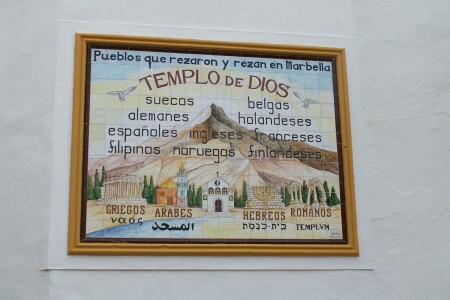 Pueblos que rezaron y rezan en Marbella
TEMPLO DE DIOS
suecos belgas
alemanes holandeses
españoles ingleses franceses
filipinos noruegos finlandeses
GRIEGOS ARABES HEBREOS ROMANOS
ναός المسجد בית-כנסת TEMPLVM